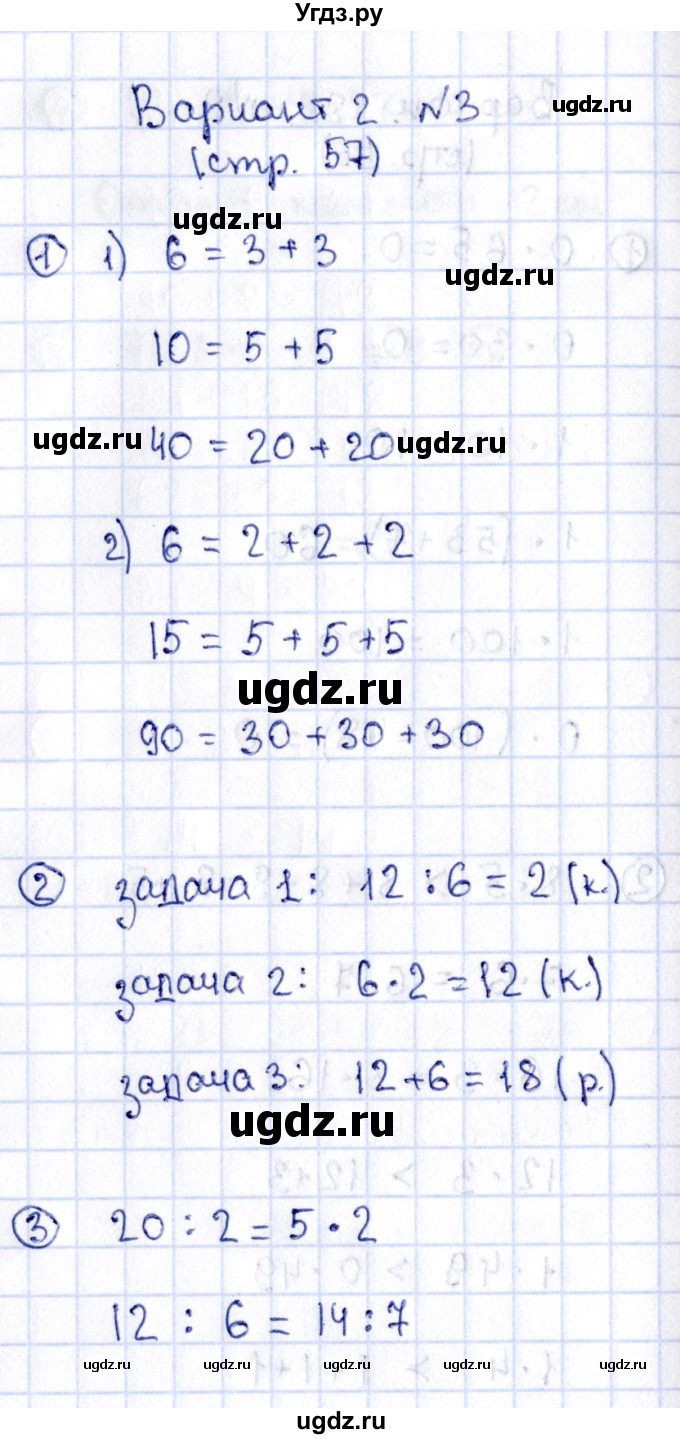 Угдз.ру
Вариант 2. №3
ugdz.ru
(стр. 57)
ugdz.ru
① 1) 6 = 3 + 3
ugdz.ru
10 = 5 + 5
ugdz.ru 40 = 20 + 20 ugdz.ru
2) 6 = 2 + 2 + 2
15 = 5 + 5 + 5
ugdz.ru
90 = 30 + 30 + 30
② задача 1: 12 : 6 = 2 (к.)
задача 2: 6 · 2 = 12 (к.)
задача 3: 12 + 6 = 18 (р.)
ugdz.ru
③ 20 : 2 = 5 · 2
12 : 6 = 14 : 7
ugdz.ru ugdz.ru ugdz.ru ugdz.ru ugdz.ru
ugdz.ru